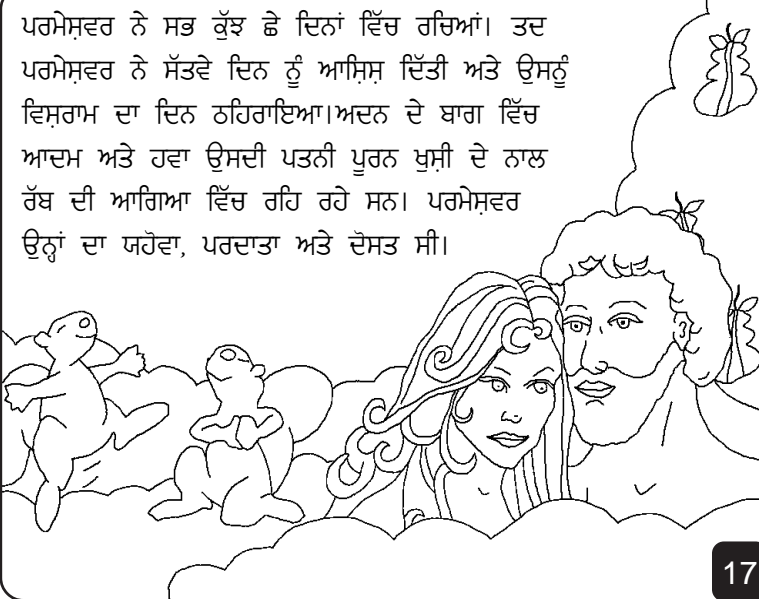 ਪਰਮੇਸ਼ਵਰ ਨੇ ਸਭ ਕੁੱਝ ਛੇ ਦਿਨਾਂ ਵਿੱਚ ਰਚਿਆਂ। ਤਦ
ਪਰਮੇਸ਼ਵਰ ਨੇ ਸੱਤਵੇ ਦਿਨ ਨੂੰ ਆਸ਼ਿਸ਼ ਦਿੱਤੀ ਅਤੇ ਉਸਨੂੰ
ਵਿਸ਼ਰਾਮ ਦਾ ਦਿਨ ਠਹਿਰਾਇਆ।ਅਦਨ ਦੇ ਬਾਗ ਵਿੱਚ
ਆਦਮ ਅਤੇ ਹਵਾ ਉਸਦੀ ਪਤਨੀ ਪੂਰਨ ਖੁਸ਼ੀ ਦੇ ਨਾਲ
ਰੱਬ ਦੀ ਆਗਿਆ ਵਿੱਚ ਰਹਿ ਰਹੇ ਸਨ। ਪਰਮੇਸ਼ਵਰ
ਉਨ੍ਹਾਂ ਦਾ ਯਹੋਵਾ, ਪਰਦਾਤਾ ਅਤੇ ਦੋਸਤ ਸੀ।
17